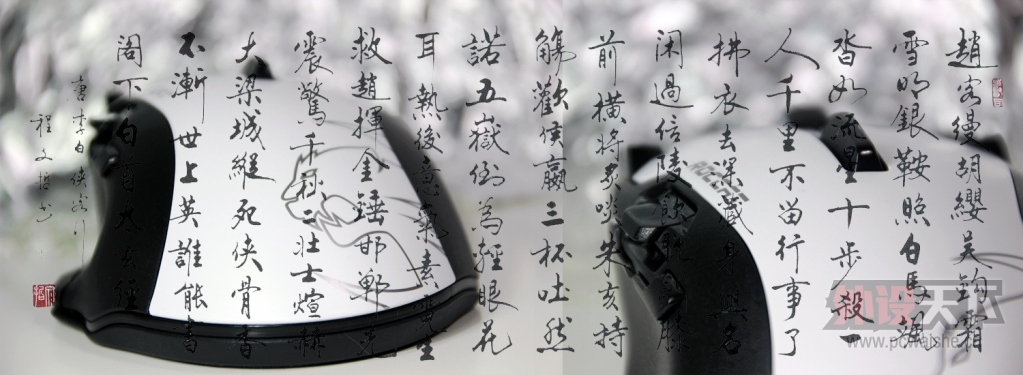 趙客縵胡纓吳鉤霜
雪明銀鞍照白馬颯
沓如流星十步殺
人千里不留行事了
拂衣去深藏身與名
閑過信陵飲脫膝
前橫將炙啖朱亥持
觴勸侯嬴三杯吐然
諾五嶽倒為輕眼花
耳熱後意氣素霓生
救趙揮金錘邯鄲先
震驚千秋二壯士煊赫
大梁城縱死俠骨香
不漸世上英誰能書
閣下白首太玄經
唐李白俠客行
程文書
外设天下
www.pcwaishe.